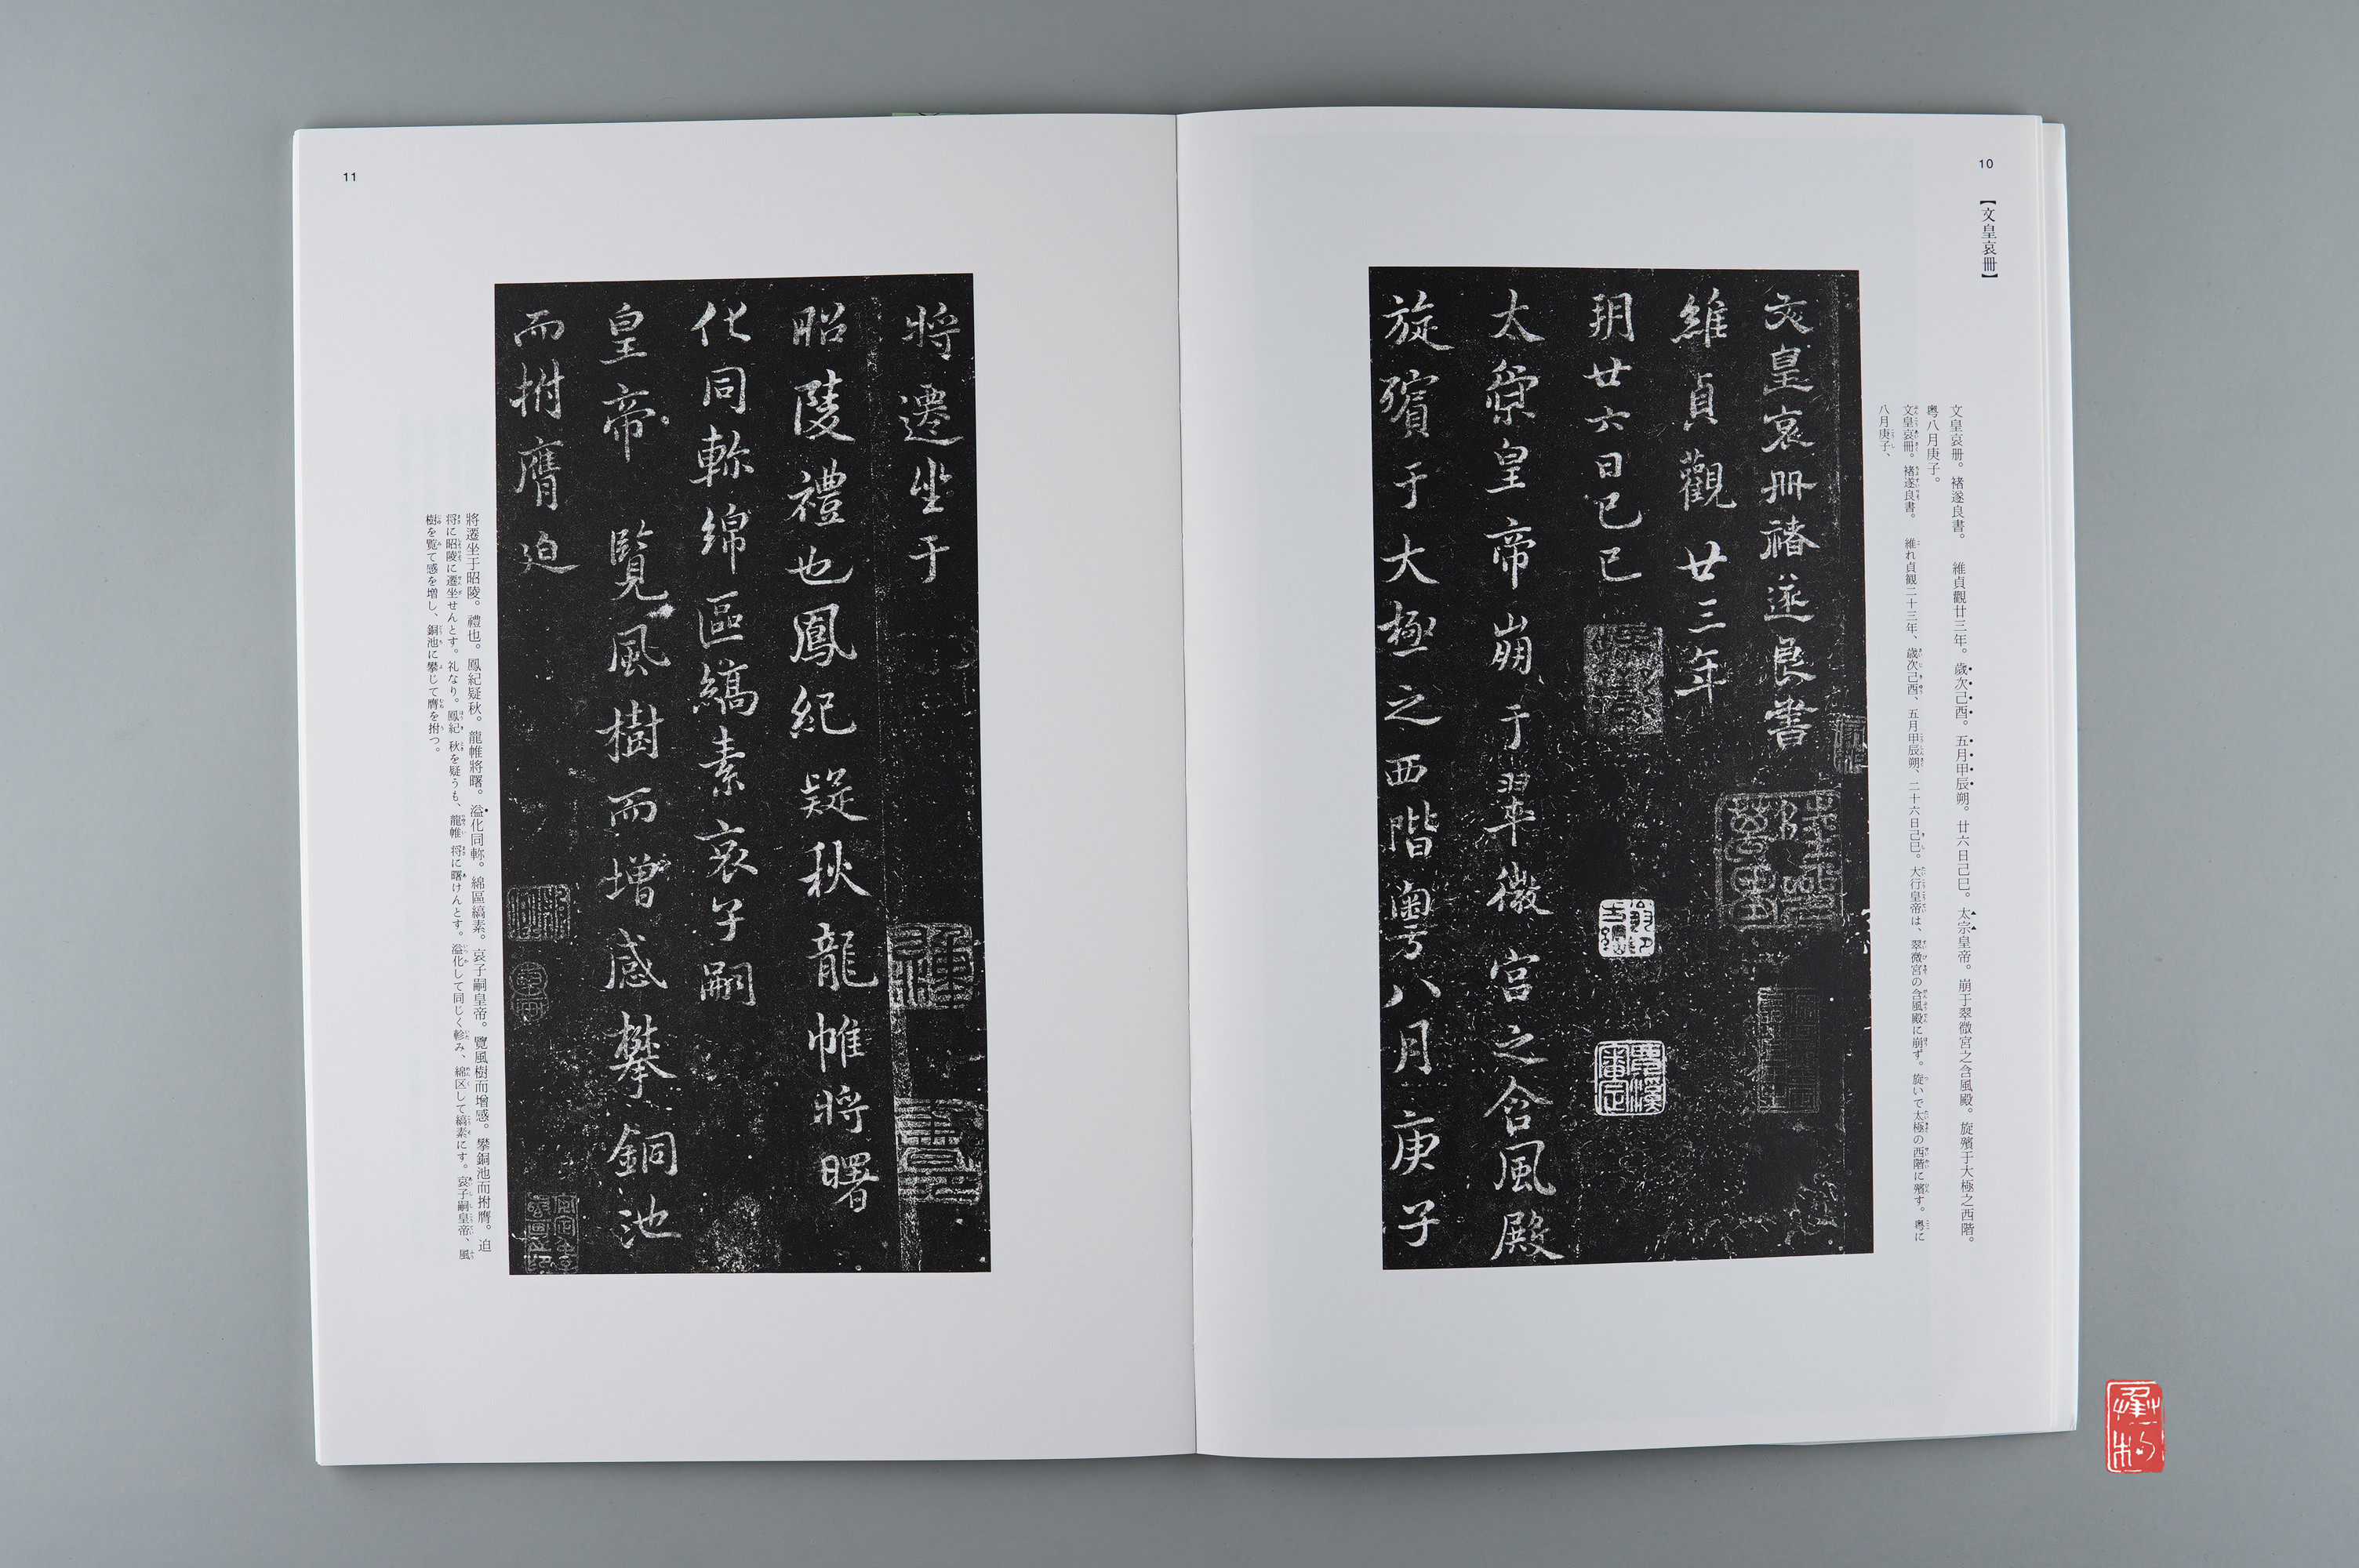 10
【文皇哀冊】
文皇哀册。褚遂良書。　維貞觀廿三年。歳次己酉。五月甲辰朔。廿六日己巳。太宗皇帝。崩于翠微宮之含風殿。旋殯于大極之西階。
粤八月庚子。
文皇哀冊。褚遂良書。　維れ貞観二十三年、歳次己酉、五月甲辰朔、二十六日己巳。大行皇帝は、翠微宮の含風殿に崩ず。旋いで太極の西階に殯す。粤に
八月庚子、
文皇哀冊褚遂良書
維貞觀廿三年
朔廿六日己巳
太宗皇帝崩于翠微宮之含風殿
旋殯于大極之西階粤八月庚子
11
將遷坐于
昭陵禮也鳳紀疑秋龍帷將曙
化同軫綿區縞素哀子嗣
皇帝覽風樹而增感攀銅池
而拊膺迫
將遷坐于昭陵。禮也。鳳紀疑秋。龍帷將曙。溢化同軫。綿區縞素。哀子嗣皇帝。覽風樹而增感。攀銅池而拊膺。迫
将に昭陵に遷坐せんとす。礼なり。鳳紀 秋を疑うも、龍帷 将に曙けんとす。溢化して同じく軫み、綿区して縞素にす。哀子嗣皇帝、風
樹を覧て感を増し、銅池に攀じて膺を拊つ。